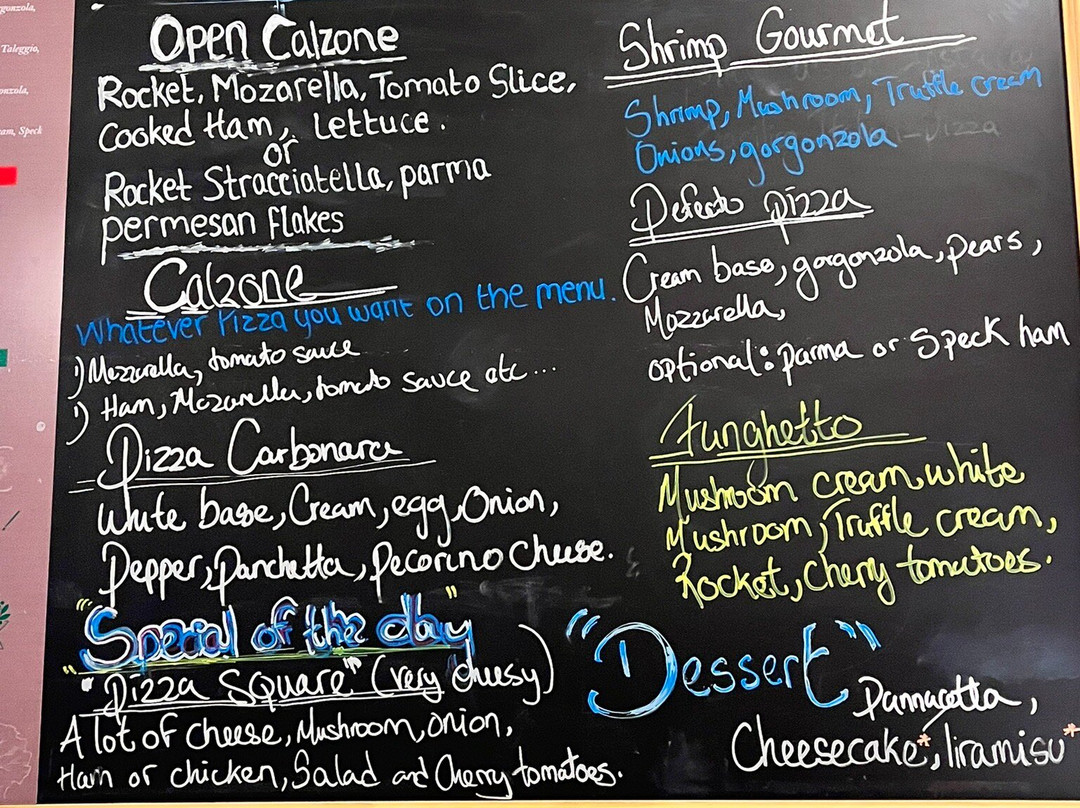 gonzola,
Taleggio,
onzola,
am, Speck
Open Calzone
Rocket, Mozarella, Tomato Slice,
Cooked Ham, Lettuce.
or
Rocket Stracciatella, parma
permesan flakes
Calzone
Whatever Pizza you want on the menu.
1) Mozzarella, tomato sauce
1) Ham, Mozarella, tomato sauce etc...
Pizza Carbonara
White base, Cream, egg, Onion,
Pepper, panchetta, pecorino cheese.
"Special of the day"
"Pizza Square" (very cheesy)
A lot of cheese, Mushroom, onion,
Ham or chicken, Salad and Cherry tomatoes.
Shrimp Gourmet
Shrimp, Mushroom, Truffle cream
Onions, gorgonzola
Defesto pizza
Cream base, gorgonzola, pears,
Mozzarella,
optional: parma or Speck ham
Funghetto
Mushroom cream, white
Mushroom, Truffle cream,
Rocket, Cherry tomatoes.
"Dessert"
Pannacotta,
Cheesecake*, Tiramisu*